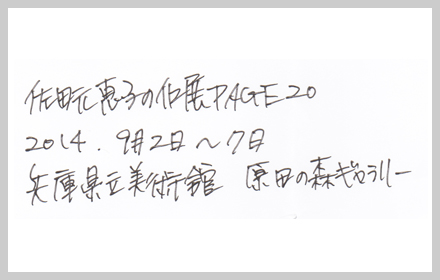 佐田元恵子の個展PAGE20
2014.9月2日～7日
兵庫県立美術館 原田の森ギャラリー